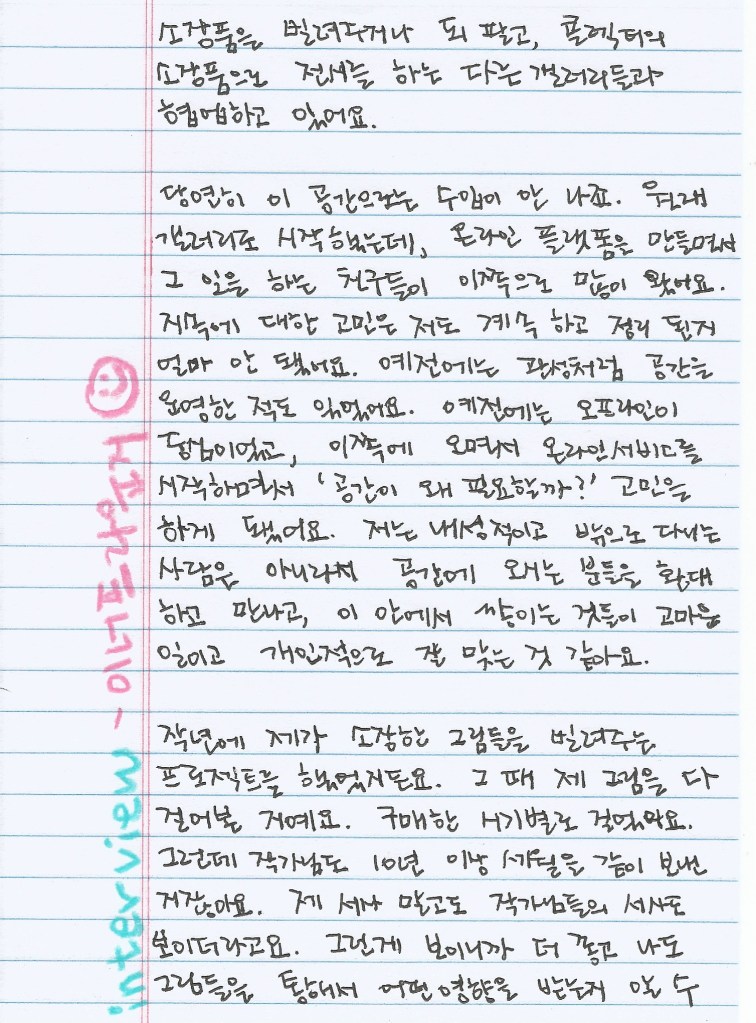 소장품을 빌려주거나 되 팔고, 콜렉터의
소장품으로 전시를 하는 다른 갤러리들과
협업하고 있어요.
당연히 이 공간으로는 수입이 안 나죠. 원래
갤러리로 시작했는데, 온라인 플랫폼을 만들면서
그 일을 하는 친구들이 이쪽으로 많이 왔어요.
지속에 대한 고민은 저도 계속 하고 정리 된지
얼마 안 됐어요. 예전에는 관성처럼 공간을
운영한 적도 있었어요. 예전에는 오프라인이
답이었고, 이쪽에 오면서 온라인서비스를
시작하면서 '공간이 왜 필요할까?' 고민을
하게 됐어요. 저는 내성적이고 밖으로 다니는
사람은 아니라서 공간에 오시는 분들을 환대
하고 만나고, 이 안에서 쌓이는 것들이 고마운
일이고 개인적으로 잘 맞는 것 같아요.
작년에 제가 소장한 그림들을 빌려주는
프로젝트를 했었거든요. 그 때 제 그림을 다
걸어본 거예요. 구매한 시기별로 걸었어요.
그런데 작가님도 10년 이상 세월을 같이 보낸
거잖아요. 제 서사 말고도 작가님들의 서사도
보이더라고요. 그런게 보이니까 더 좋고 나도
그림들을 통해서 어떤 영향을 받는지 알 수
interview - 이너프라우지